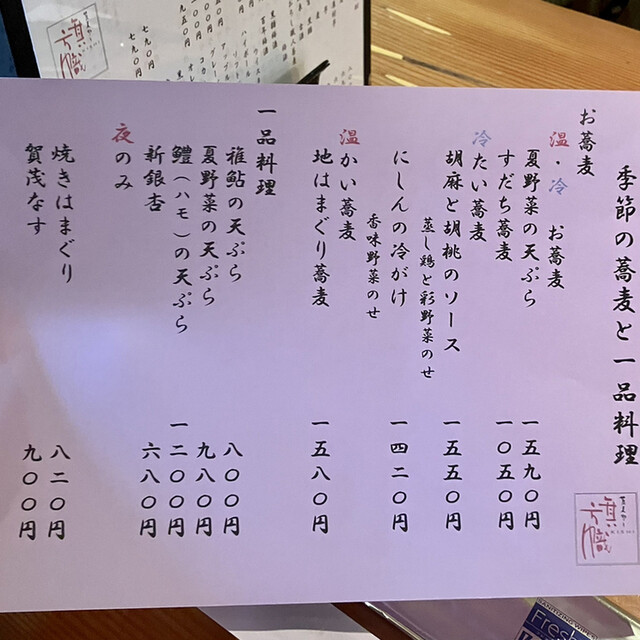 季節の蕎麦と一品料理
お蕎麦
温・冷 お蕎麦
夏野菜の天ぷら 一五九〇円
すだち蕎麦 一〇五〇円
冷たい蕎麦
胡麻と胡桃のソース 一五五〇円
蒸し鶏と彩野菜のせ
にしんの冷がけ 一四二〇円
香味野菜のせ
温かい蕎麦
地はまぐり蕎麦 一五八〇円
一品料理
稚鮎の天ぷら 八〇〇円
夏野菜の天ぷら 九八〇円
鱧(ハモ)の天ぷら 一二〇〇円
新銀杏 六八〇円
夜のみ
焼きはまぐり 八二〇円
賀茂なす 九〇〇円
七九〇円
七九〇円
Fresh